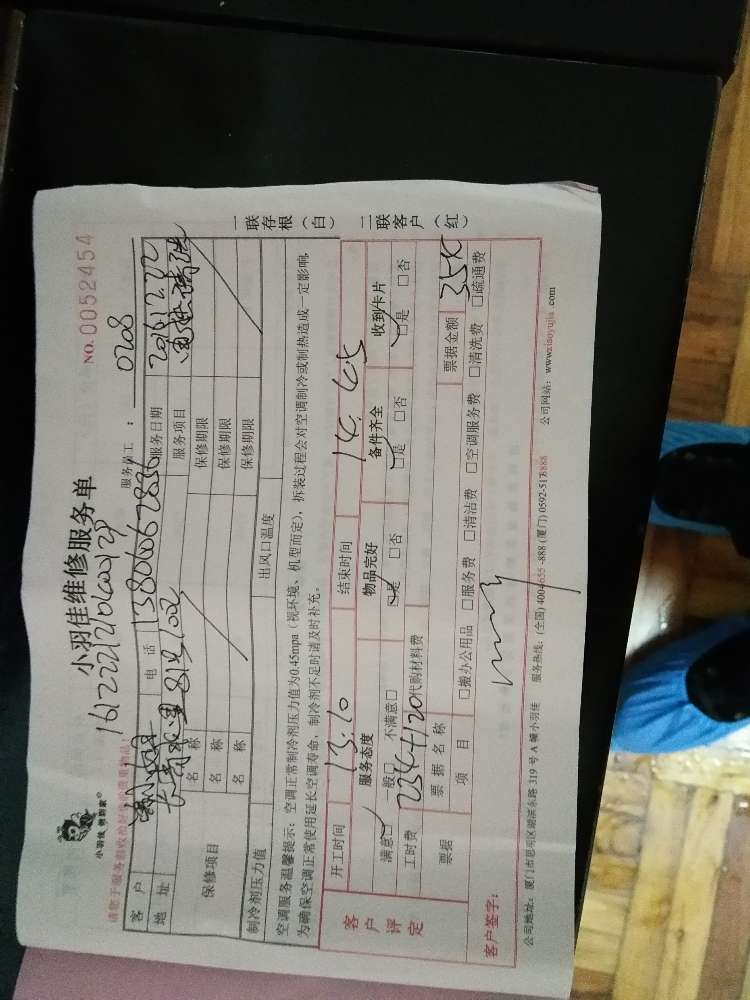 小羽佳 傲管家®
小羽佳维修服务单
NO. 0052454
请您于服务前收检好您的贵重物品!
服务员工: 0208
客户 电话 13806062836 服务日期 2016.12.22
地址 服务项目
保修项目 名称 保修期限
名称 保修期限
名称 保修期限
制冷剂压力值 出风口温度
空调服务温馨提示:空调正常制冷剂压力值为0.45mpa(视环境、机型而定),拆装过程会对空调制冷或制热造成一定影响
为确保空调正常使用延长空调寿命,制冷剂不足时请及时补充。
一联存根(白) 二联客户(红)
客户评定
开工时间 13.10 结束时间 14.45
服务态度 物品完好 备件齐全 收到卡片
满意□ 一般□ 不满意□ □是 □否 □是 □否 □是 □否
工时费 234+120 代购材料费
票据 票据名称 票据金额 354
项目 □搬办公用品 □服务费 □清洁费 □空调服务费 □清洗费 □疏通费
客户签字:
公司地址:厦门市思明区湖滨东路 319 号 A 幢小羽佳 服务热线:(全国) 4004655-888 (厦门) 0592-5178888 公司网站:www.xiaoyujia.com